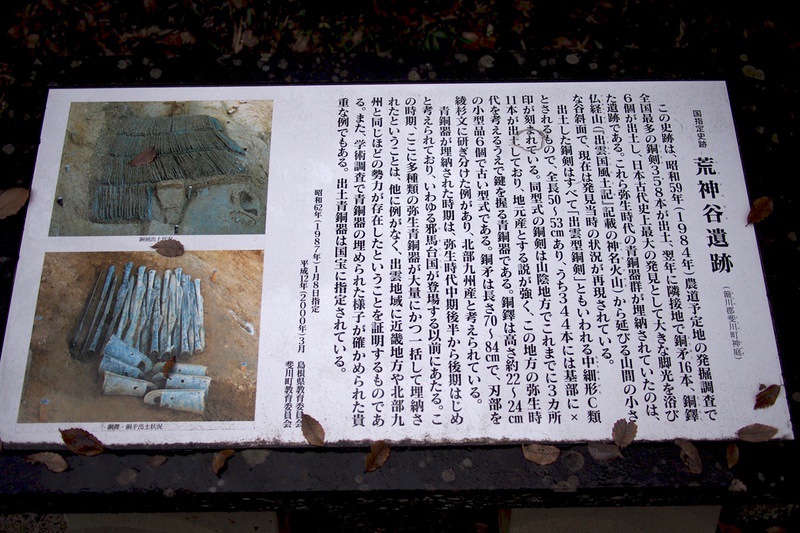 国指定史跡
荒神谷遺跡
(簸川郡斐川町神庭)
この史跡は、昭和59年(1984年)農道予定地の発掘調査で
全国最多の銅剣358本が出土、翌年に隣接地で銅矛16本、銅鐸
6個が出土し、日本古代史上最大の発見として大きな脚光を浴び
た遺跡である。これら弥生時代の青銅器群が埋納されていたのは、
仏経山(『出雲国風土記』記載の神名火山)から延びる山間の小さ
な谷斜面で、現在は発見当時の状況が再現されている。
出土した銅剣はすべて「出雲型銅剣」ともいわれる中細形C類
とされるもので、全長50〜53㎝あり、うち344本には基部に×
印が刻まれている。同型式の銅剣は山陰地方でこれまでに3カ所
11本が出土しており、地元産とする説が強く、この地方の弥生時
代を考えるうえで鍵を握る青銅器である。銅鐸は高さ約22〜24㎝
の小型品6個で古い型式である。銅矛は長さ70〜84㎝で、刃部を
綾杉文に研ぎ分けた例があり、北部九州産と考えられている。
青銅器が埋納された時期は、弥生時代中期後半から後期はじめ
と考えられており、いわゆる邪馬台国が登場する以前にあたる。こ
の時期、ここに多種類の弥生青銅器が大量にかつ一括して埋納さ
れたということは、他に例がなく、出雲地域に近畿地方や北部九
州と同じほどの勢力が存在したということを証明するものであ
る。また、学術調査で青銅器の埋められた様子が確かめられた貴
重な例でもある。出土青銅器は国宝に指定されている。
昭和62年(1987年)1月8日指定
平成12年(2000年)3月
島根県教育委員会
斐川町教育委員会
銅剣出土状況
銅鐸・銅矛出土状況